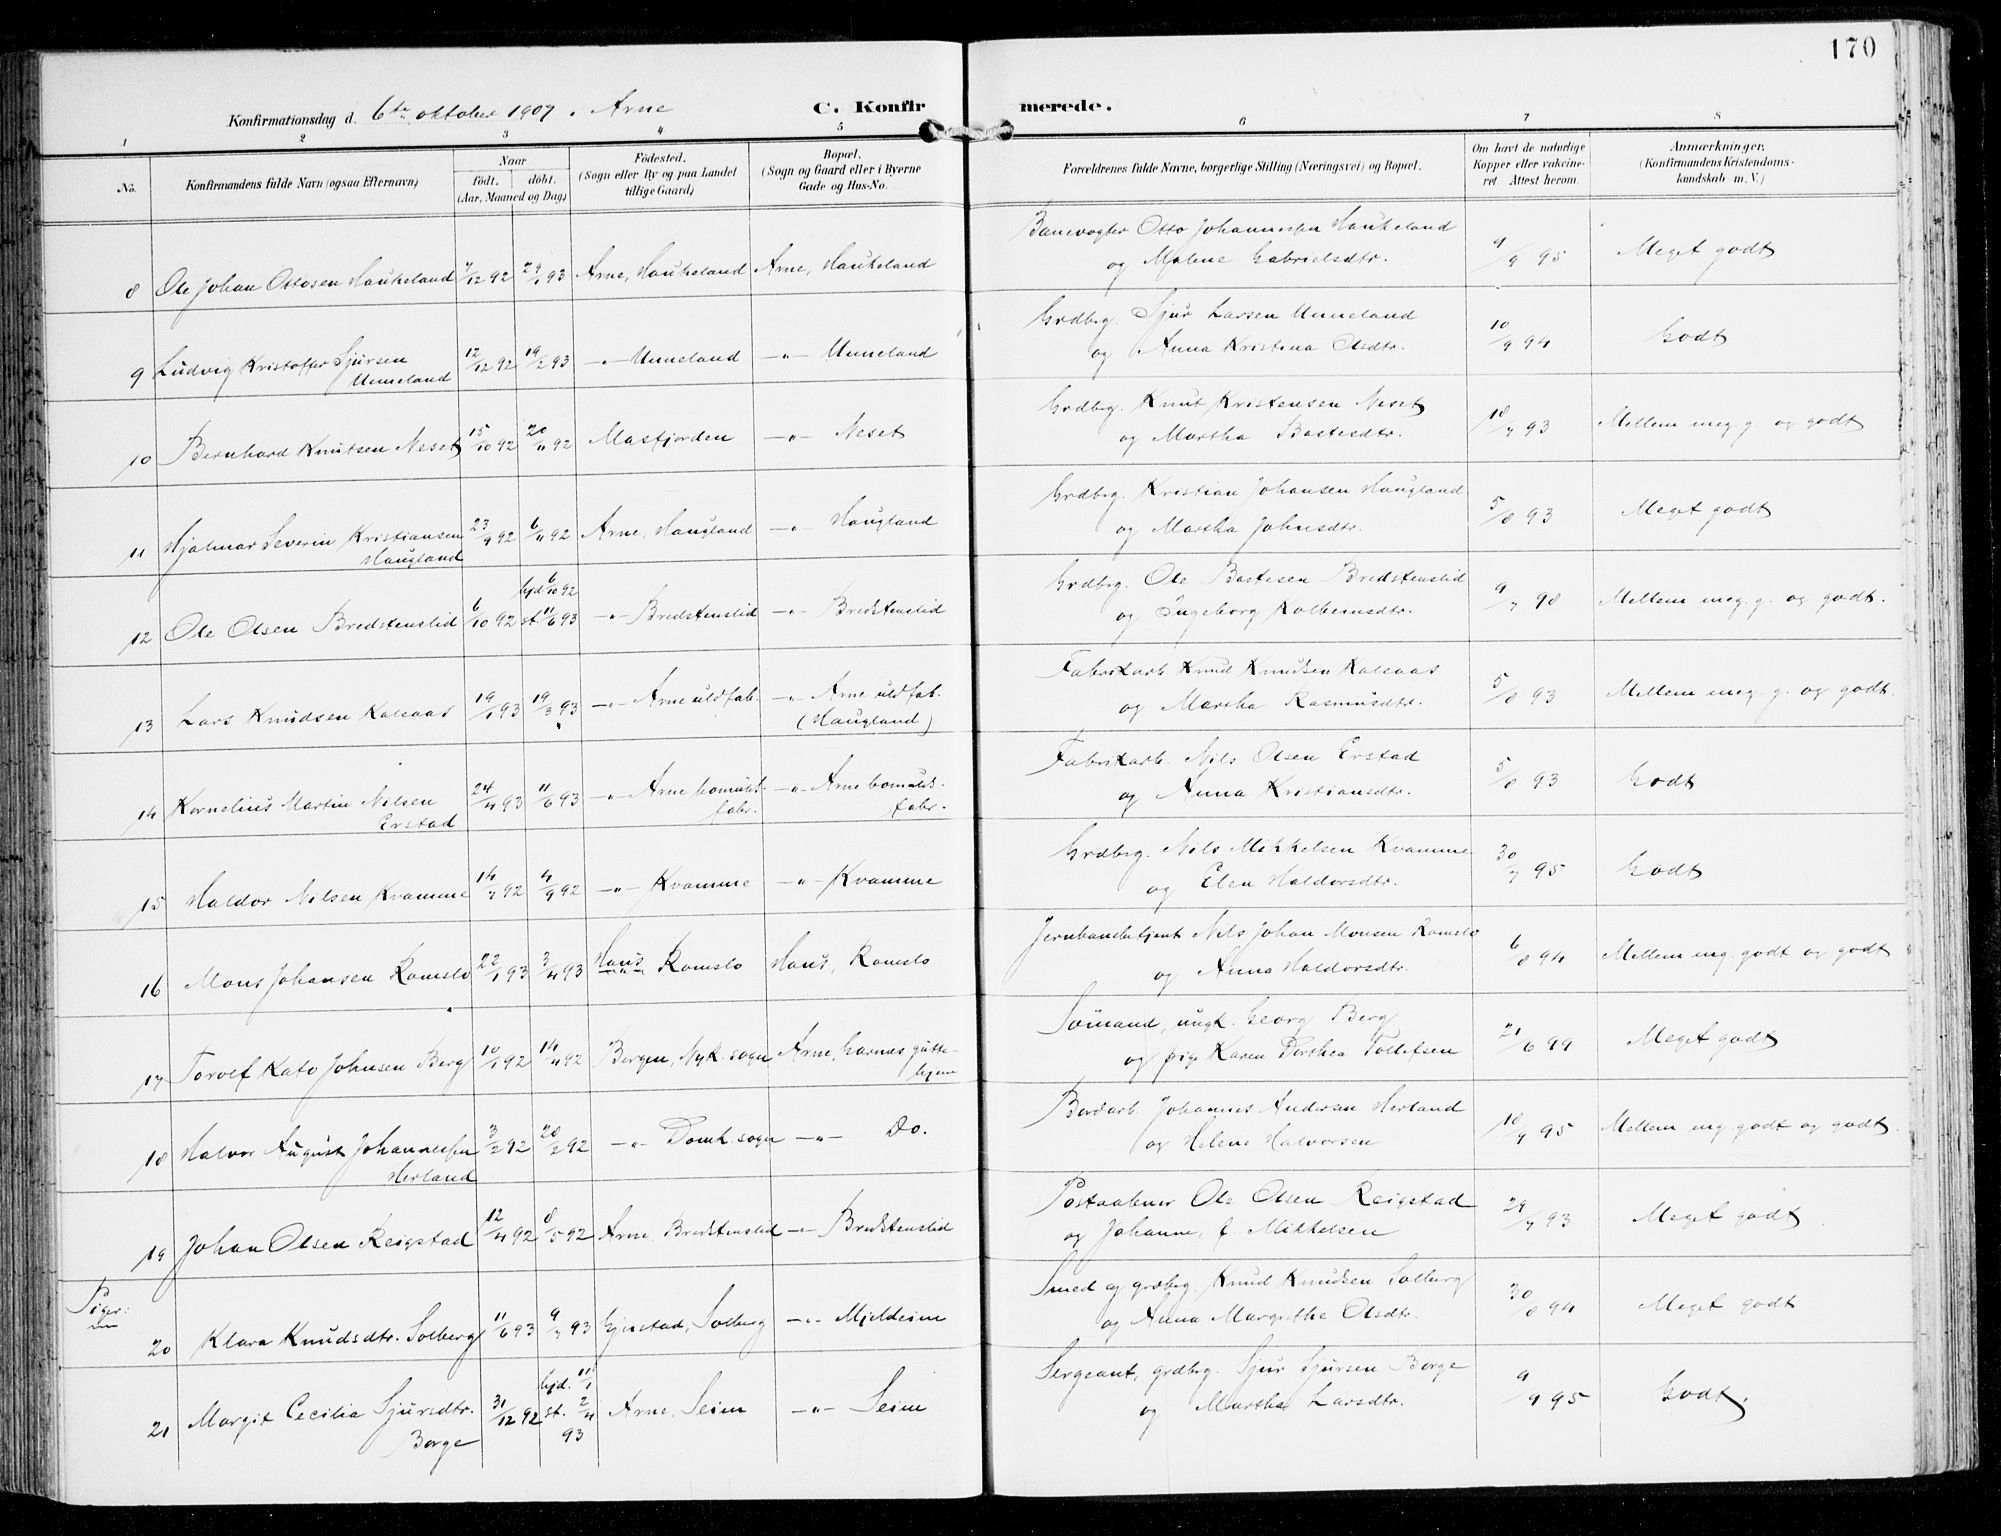 170
Konfirmationsdag d. 6te oktober 1907 i Arne C. Konfirmerede.
1 2 3 4 5 6 7 8
No. Konfirmandens fulde Navn (ogsaa Efternavn) Naar født, døbt. (Aar, Maaned og Dag) Fødested. (Sogn eller By og paa Landet tillige Gaard) Bopæl. (Sogn og Gaard eller i Byerne Gade og Hus-No. Forældrenes fulde Navne, borgerlige Stilling (Næringsvei) og Bopæl. Om havt de naturlige Kopper eller vakcineret. Attest herom. Anmærkninger. (Konfirmandens Kristendomskundskab m. V.)
8 Ole Johan Ottosen Haukeland 7/12 92 29/1 93 Arne, Haukeland Arne, Haukeland Banevogter Otto Johannessen Haukeland og Malene Gabrielsdtr. 9/9 95 Meget godt
9 Ludvig Kristoffer Sjursen Unneland 12/12 92 19/2 93 -"- Unneland -"- Unneland Grdbrg. Sjur Larsen Unneland og Anna Kristina Olsdtr. 10/9 94 Godt
10 Bernhard Knutsen Neset 15/10 92 20/11 92 Masfjorden -"- Neset Grdbrg. Knut Kristensen Neset og Martha Bastesdtr. 18/7 93 Mellem meg. g. og godt
11 Hjalmar Severin Kristiansen Haugland 23/9 92 6/11 92 Arne, Haugland -"- Haugland Grdbrg. Kristian Johansen Haugland og Martha Johnsdtr. 5/8 93 Meget godt
12 Ole Olsen Bredstenslid 6/10 92 hjd. 6/10 92 st. 11/6 93 -"- Bredstenslid -"- Bredstenslid Grdbrg. Ole Bastesen Bredstenslid og Ingeborg Kolbensdtr. 9/7 98 Mellem meg. g. og godt.
13 Lars Knudsen Kalsaas 19/1 93 19/3 93 -"- Arne uldfab. -"- Arne uldfab. (Haugland) Fabrikarb. Knud Knudsen Kalsaas og Martha Rasmusdtr. 5/8 93 Mellem meg. g. og godt.
14 Kornelius Martin Nilsen Erstad 24/4 93 11/6 93 -"- Arne bomulds. fabr. -"- Arne bomulds. fabr. Fabrikarb. Nils Olsen Erstad og Anna Kristiansdtr. 5/8 93 Godt
15 Haldor Nilsen Kvamme 14/7 92 4/9 92 -"- Kvamme -"- Kvamme Grdbrg. Nils Mikkelsen Kvamme og Elen Haldorsdtr. 30/7 95 Godt
16 Mons Johansen Romslo 22/1 93 3/4 93 Haus Romslo Haus, Romslo Jernbanebetjent Nils Johan Monsen Romslo og Anna Haldorsdtr. 6/8 94 Mellem meg. godt og godt
17 Torolf Kato Johnsen Berg 10/1 92 14/4 92 Bergen, Nyk. sogn Arne, Garnes guttehjem Sömand, ungk. Georg Berg og pige Karen Dorthea Tollefsen 21/6 99 Meget godt
18 Halvor August Johannessen Herland 3/2 92 28/2 92 -"- Domk. sogn -"- Do. Bordarb. Johannes Andersen Herland og Helene Halvorsen 18/9 95 Mellem meg. godt og godt.
19 Johan Olsen Reigstad 12/4 92 8/5 92 Arne, Bredstenslid -"- Bredstenslid Postaabner Ole Olsen Reigstad og Johanne, f. Mikkelsen 29/7 93 Meget godt
Piger:
20 Klara Knudsdtr. Solberg 11/6 93 9/7 93 Gjerstad, Solberg -"- Mjeldeim Smed og grdbrg. Knud Knudsen Solberg og Anna Margrethe Olsdtr. 30/8 94 Meget godt
21 Margit Cecilia Sjursdtr. Borge 31/12 92 hjd. 11/1 st. 2/4 93 Arne, Seim -"- Seim Sergeant, grdbrg. Sjur Sjursen Borge og Martha Larsdtr. 9/9 95 Godt.